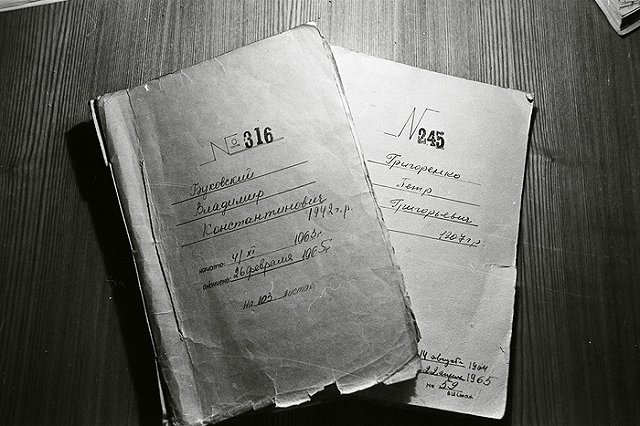 № 316
Буковский
Владимир
Константинович
1942 г.р.
начато 4/XI 1963 г.
окончено 26 февраля 1965
На 103 листах
№ 245
Григоренко
Петр
Григорьевич
1907 г.р.
14 августа 1964
1965
на 59
листах